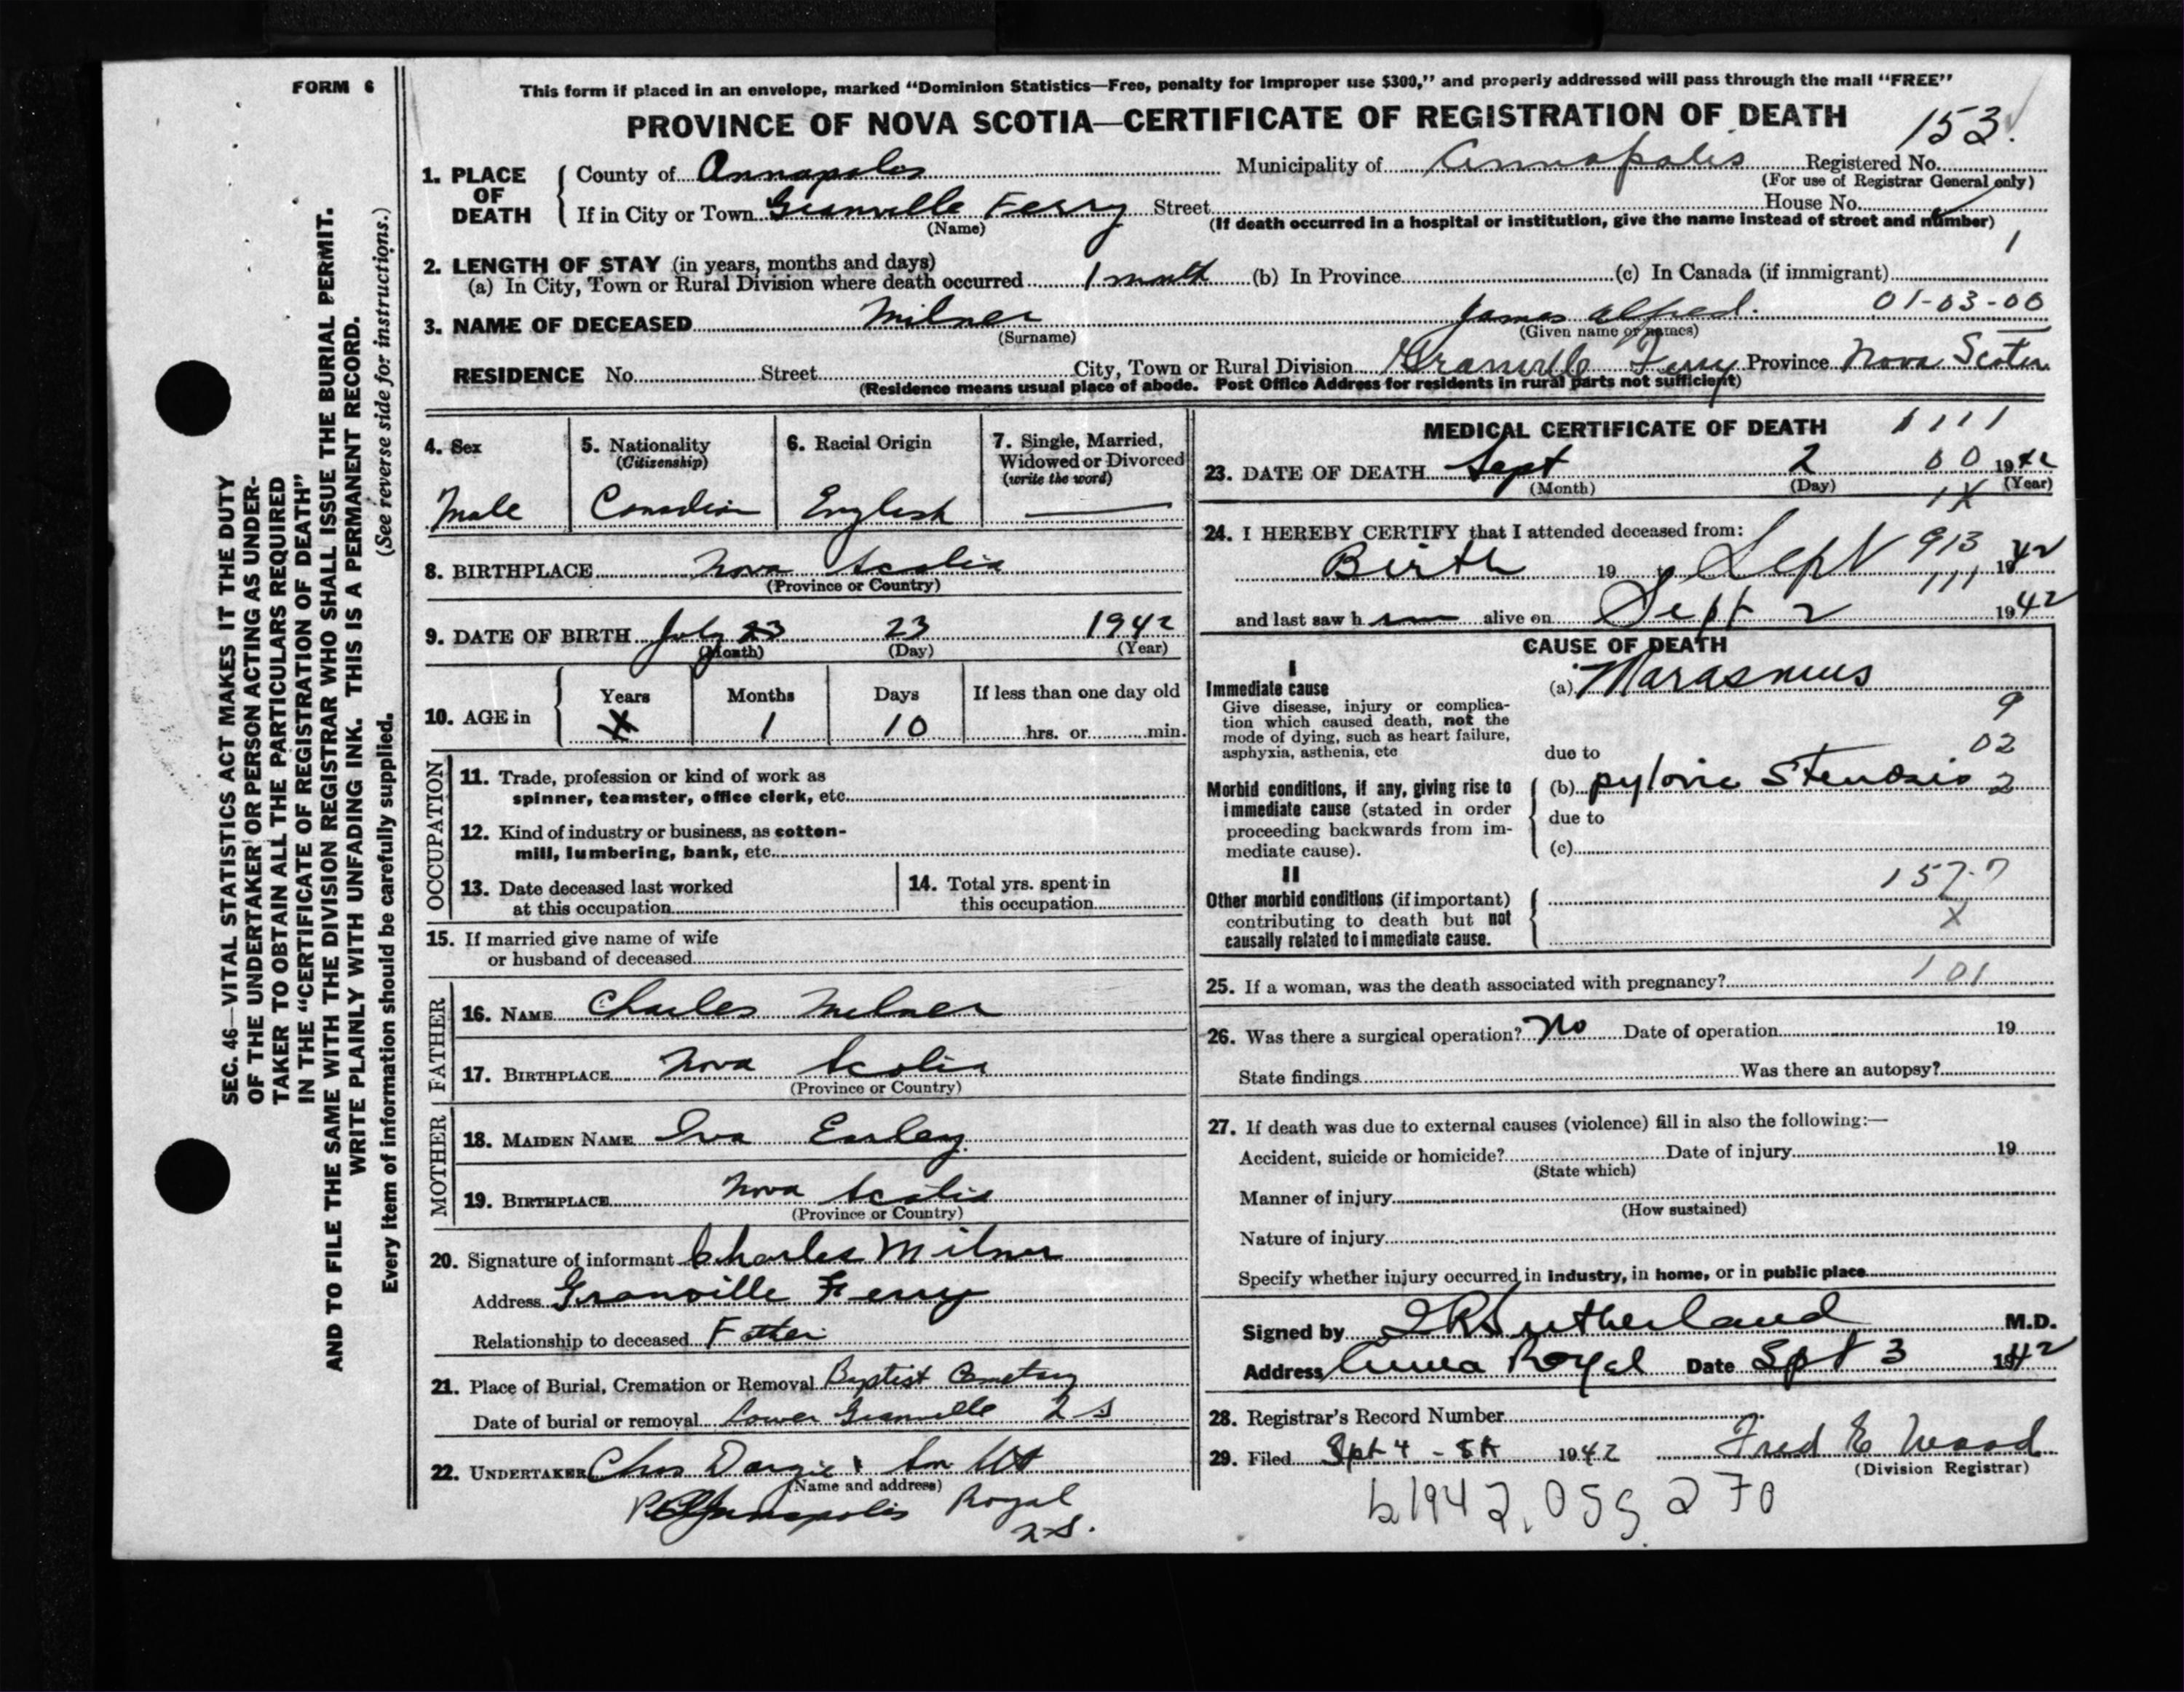 FORM 6
This form if placed in an envelope, marked "Dominion Statistics—Free, penalty for improper use $300," and properly addressed will pass through the mail "FREE"
PROVINCE OF NOVA SCOTIA—CERTIFICATE OF REGISTRATION OF DEATH
153.
1. PLACE OF DEATH
County of Annapolis Municipality of Annapolis Registered No.
(For use of Registrar General only)
If in City or Town Granville Ferry Street House No.
(Name) (If death occurred in a hospital or institution, give the name instead of street and number)
1
2. LENGTH OF STAY (in years, months and days)
(a) In City, Town or Rural Division where death occurred 1 month (b) In Province (c) In Canada (if immigrant)
3. NAME OF DECEASED Milner James Alfred. 01-03-00
(Surname) (Given name or names)
RESIDENCE No. Street City, Town or Rural Division Granville Ferry Province Nova Scotia
(Residence means usual place of abode. Post Office Address for residents in rural parts not sufficient)
4. Sex
Male
5. Nationality
(Citizenship)
Canadian
6. Racial Origin
English
7. Single, Married, Widowed or Divorced
(write the word)
—
8. BIRTHPLACE Nova Scotia
(Province or Country)
9. DATE OF BIRTH July 23 23 1942
(Month) (Day) (Year)
10. AGE in
Years Months Days If less than one day old
X 1 10 hrs. or min.
OCCUPATION
11. Trade, profession or kind of work as
spinner, teamster, office clerk, etc.
12. Kind of industry or business, as cotton-
mill, lumbering, bank, etc.
13. Date deceased last worked
at this occupation
14. Total yrs. spent in
this occupation
15. If married give name of wife
or husband of deceased
FATHER
16. NAME Charles Milner
17. BIRTHPLACE Nova Scotia
(Province or Country)
MOTHER
18. MAIDEN NAME Iva
19. BIRTHPLACE Nova Scotia
(Province or Country)
20. Signature of informant Charles Milner
Address Granville Ferry
Relationship to deceased Father
21. Place of Burial, Cremation or Removal Baptist Cemetery
Date of burial or removal Lower Granville
22. UNDERTAKER Chas Dargie & Son
(Name and address)
Annapolis Royal
N.S.
MEDICAL CERTIFICATE OF DEATH
1111
23. DATE OF DEATH Sept 2 00 1942
(Month) (Day) (Year)
1X
24. I HEREBY CERTIFY that I attended deceased from:
913
Birth 19 to Sept 1942
111
and last saw him alive on Sept 2 1942
CAUSE OF DEATH
I
Immediate cause
Give disease, injury or complica-
tion which caused death, not the
mode of dying, such as heart failure,
asphyxia, asthenia, etc
(a) Marasmus
9
02
due to
Morbid conditions, if any, giving rise to
immediate cause (stated in order
proceeding backwards from im-
mediate cause).
(b) pyloric Stenosis 2
due to
(c)
II
157.7
Other morbid conditions (if important)
contributing to death but not
causally related to immediate cause.
X
25. If a woman, was the death associated with pregnancy? 101
26. Was there a surgical operation? No Date of operation 19
State findings Was there an autopsy?
27. If death was due to external causes (violence) fill in also the following:—
Accident, suicide or homicide? Date of injury 19
(State which)
Manner of injury
(How sustained)
Nature of injury
Specify whether injury occurred in industry, in home, or in public place
Signed by Sutherland M.D.
Address Anna Royal Date Spt 3 1942
28. Registrar's Record Number
29. Filed Spt 4 1942 Fred E Wood
(Division Registrar)
b1942.055270
SEC. 46—VITAL STATISTICS ACT MAKES IT THE DUTY
OF THE UNDERTAKER OR PERSON ACTING AS UNDER-
TAKER TO OBTAIN ALL THE PARTICULARS REQUIRED
IN THE "CERTIFICATE OF REGISTRATION OF DEATH"
AND TO FILE THE SAME WITH THE DIVISION REGISTRAR WHO SHALL ISSUE THE BURIAL PERMIT.
WRITE PLAINLY WITH UNFADING INK. THIS IS A PERMANENT RECORD.
Every item of information should be carefully supplied. (See reverse side for instructions.)